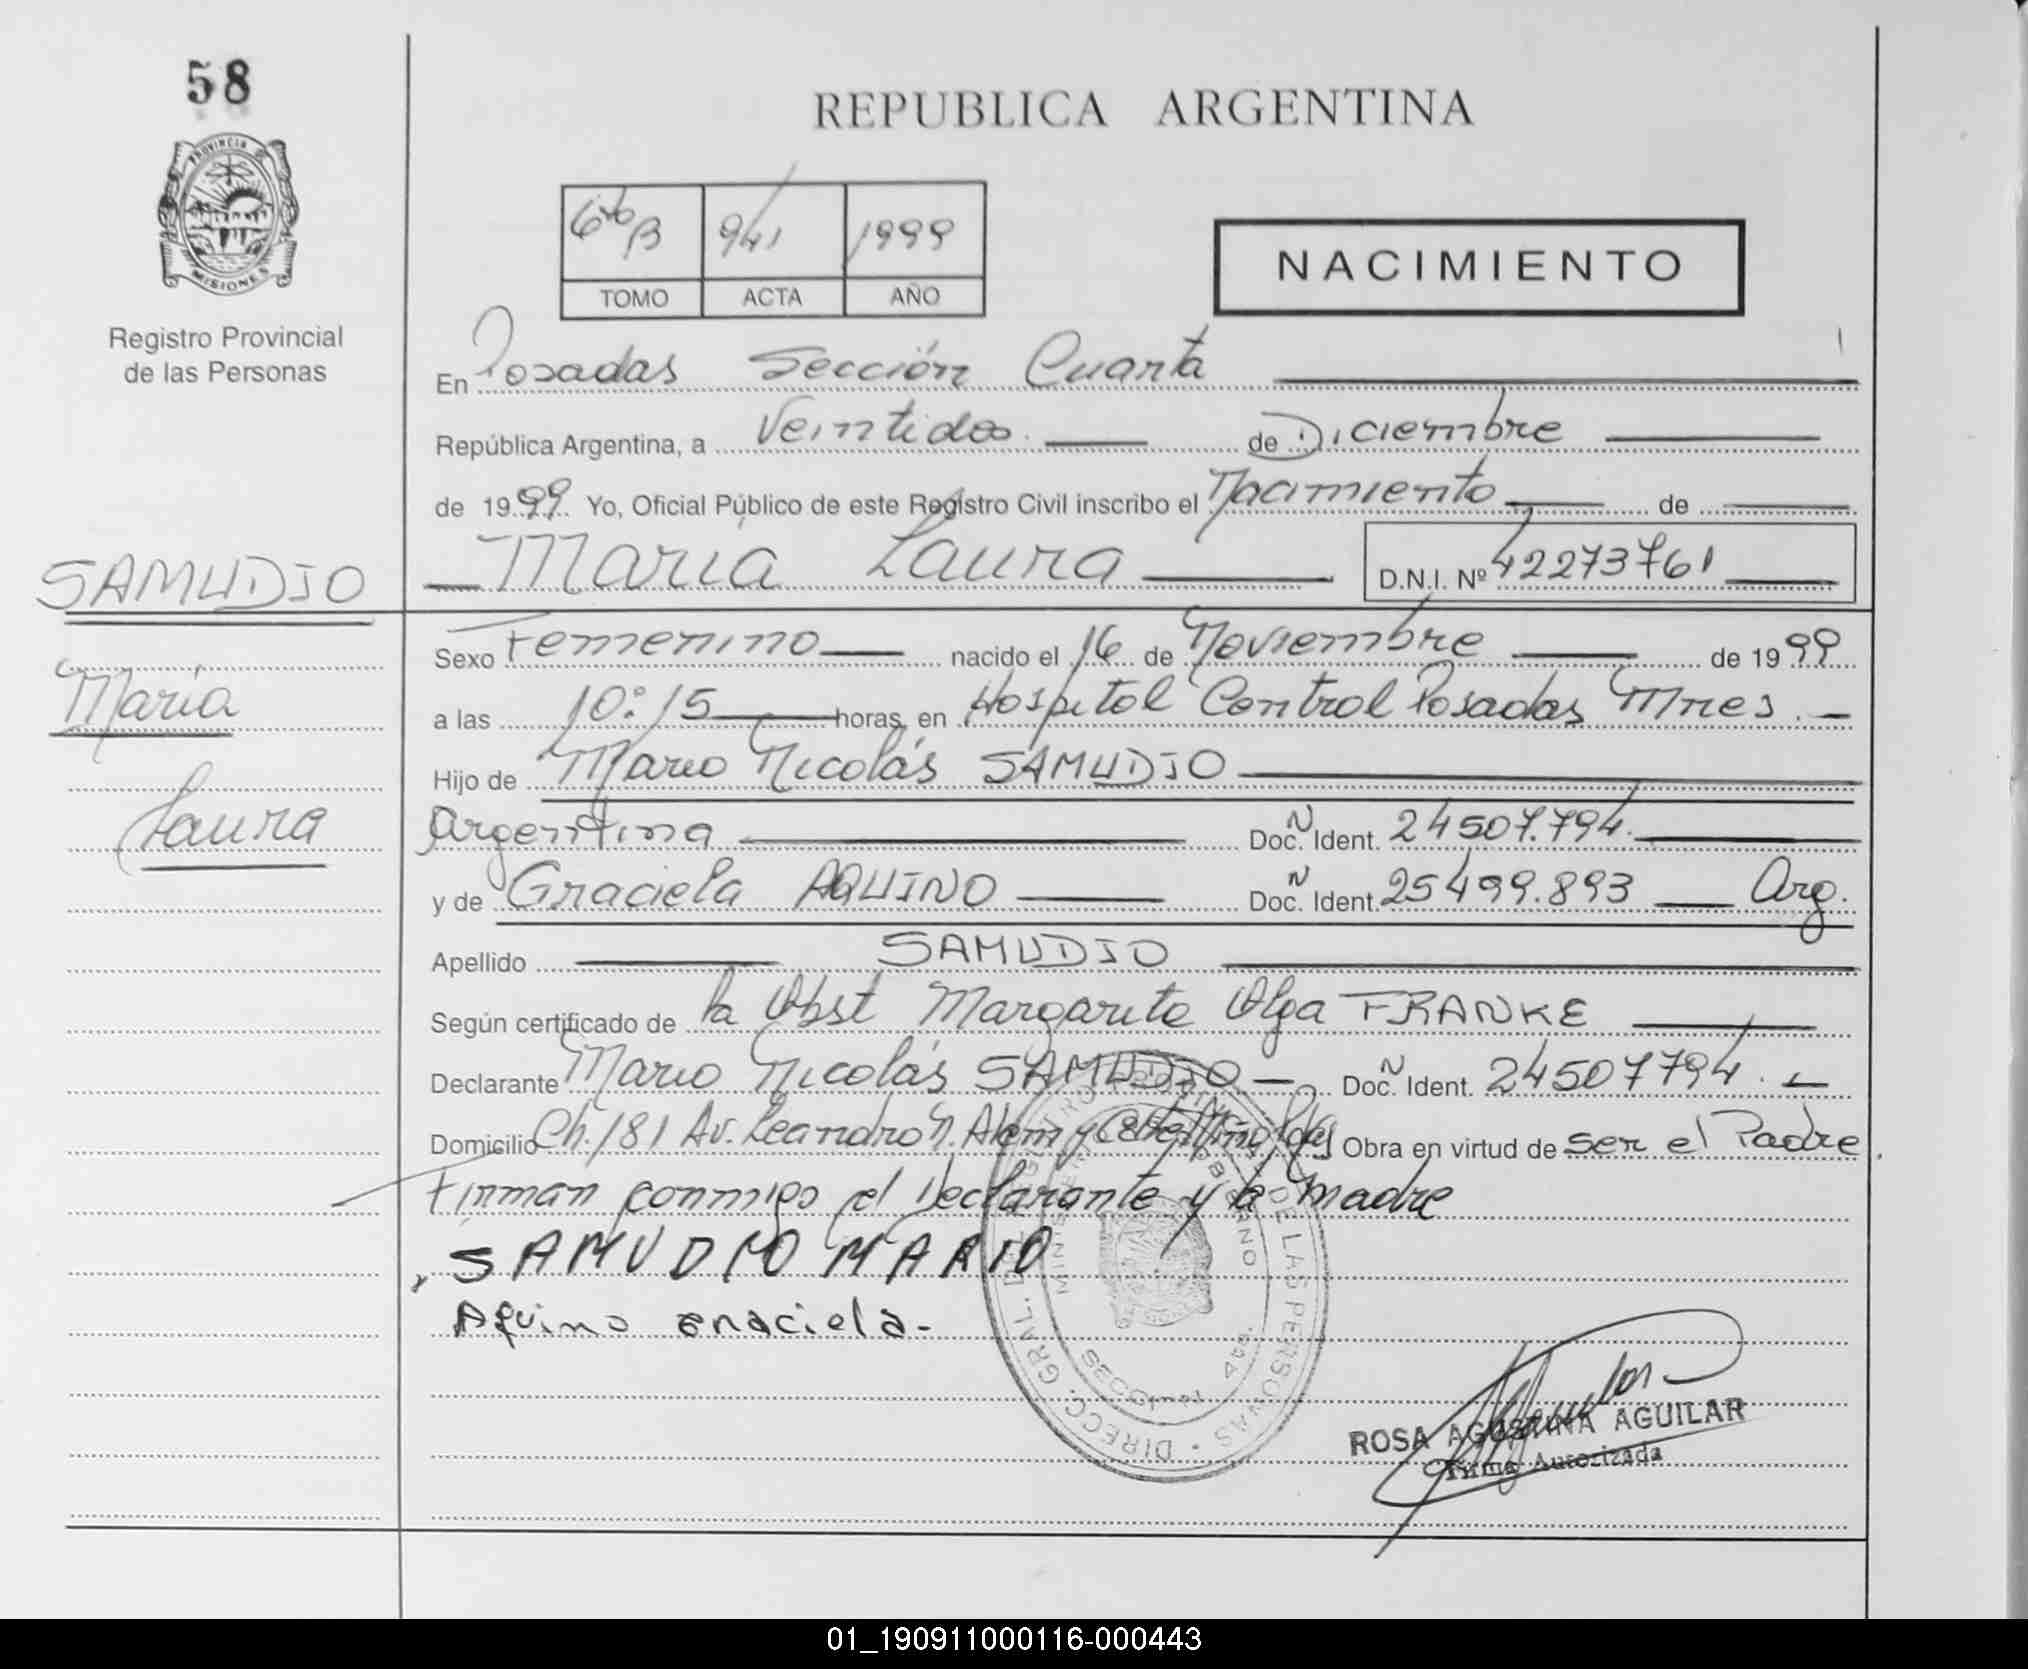 58
PROVINCIA DE
MISIONES
Registro Provincial
de las Personas
REPUBLICA ARGENTINA
6to B 941 1999
TOMO ACTA AÑO
NACIMIENTO
En Posadas Sección Cuarta
República Argentina, a Veintidos de Diciembre
de 1999 Yo, Oficial Público de este Registro Civil inscribo el Nacimiento de
María Laura D.N.I. Nº 42273761
SAMUDIO
María
Laura
Sexo Femenino nacido el 16 de Noviembre de 1999
a las 10:15 horas, en Hospital Central Posadas Mnes.
Hijo de Mario Nicolás SAMUDIO
Argentina Doc. N Ident. 24507.794.
y de Graciela AQUINO Doc. N Ident. 25499.893 Arg.
Apellido SAMUDIO
Según certificado de la Obst Margarita Olga FRANKE
Declarante Mario Nicolás SAMUDIO Doc. N Ident. 24507794.
Domicilio Ch. 181 Av. Leandro N. Alem y Obra en virtud de ser el Padre.
Firman conmigo el Declarante y la madre
SAMUDIO MARIO
Aquino Graciela.
DIRECC. GRAL. DEL REGISTRO PROVINCIAL DE LAS PERSONAS
ROSA AGUSTINA AGUILAR
Firma Autorizada
01_190911000116-000443